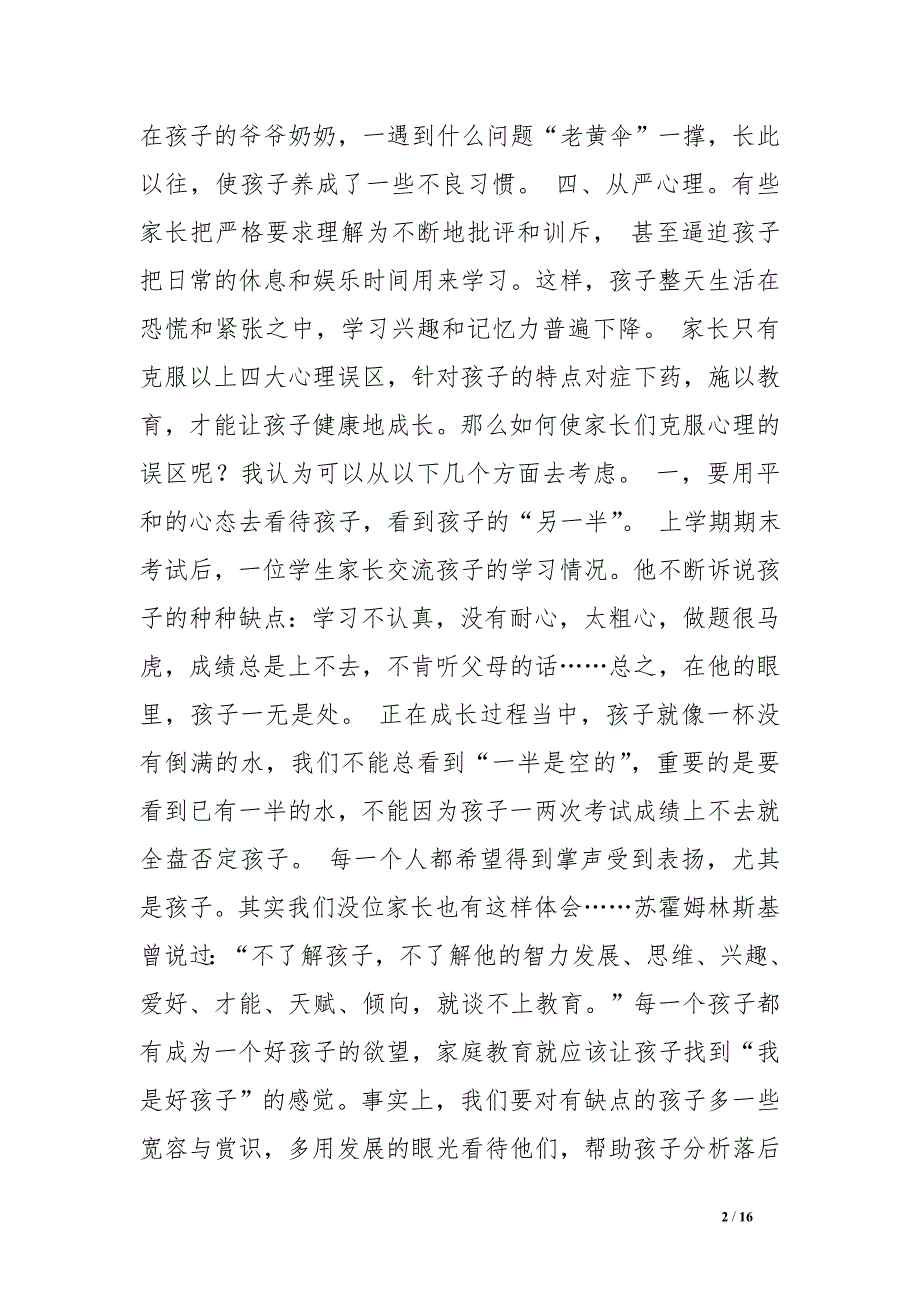 在孩子的爷爷奶奶，一遇到什么问题“老黄伞”一撑，长此
以往，使孩子养成了一些不良习惯。 四、从严心理。有些
家长把严格要求理解为不断地批评和训斥， 甚至逼迫孩子
把日常的休息和娱乐时间用来学习。这样，孩子整天生活在
恐慌和紧张之中，学习兴趣和记忆力普遍下降。 家长只有
克服以上四大心理误区，针对孩子的特点对症下药，施以教
育，才能让孩子健康地成长。那么如何使家长们克服心理的
误区呢？我认为可以从以下几个方面去考虑。 一，要用平
和的心态去看待孩子，看到孩子的“另一半”。 上学期期末
考试后，一位学生家长交流孩子的学习情况。他不断诉说孩
子的种种缺点：学习不认真，没有耐心，太粗心，做题很马
虎，成绩总是上不去，不肯听父母的话……总之，在他的眼
里，孩子一无是处。 正在成长过程当中，孩子就像一杯没
有倒满的水，我们不能总看到“一半是空的”，重要的是要
看到已有一半的水，不能因为孩子一两次考试成绩上不去就
全盘否定孩子。 每一个人都希望得到掌声受到表扬，尤其
是孩子。其实我们没位家长也有这样体会……苏霍姆林斯基
曾说过：“不了解孩子，不了解他的智力发展、思维、兴趣、
爱好、才能、天赋、倾向，就谈不上教育。”每一个孩子都
有成为一个好孩子的欲望，家庭教育就应该让孩子找到“我
是好孩子”的感觉。事实上，我们要对有缺点的孩子多一些
宽容与赏识，多用发展的眼光看待他们，帮助孩子分析落后
2 / 16